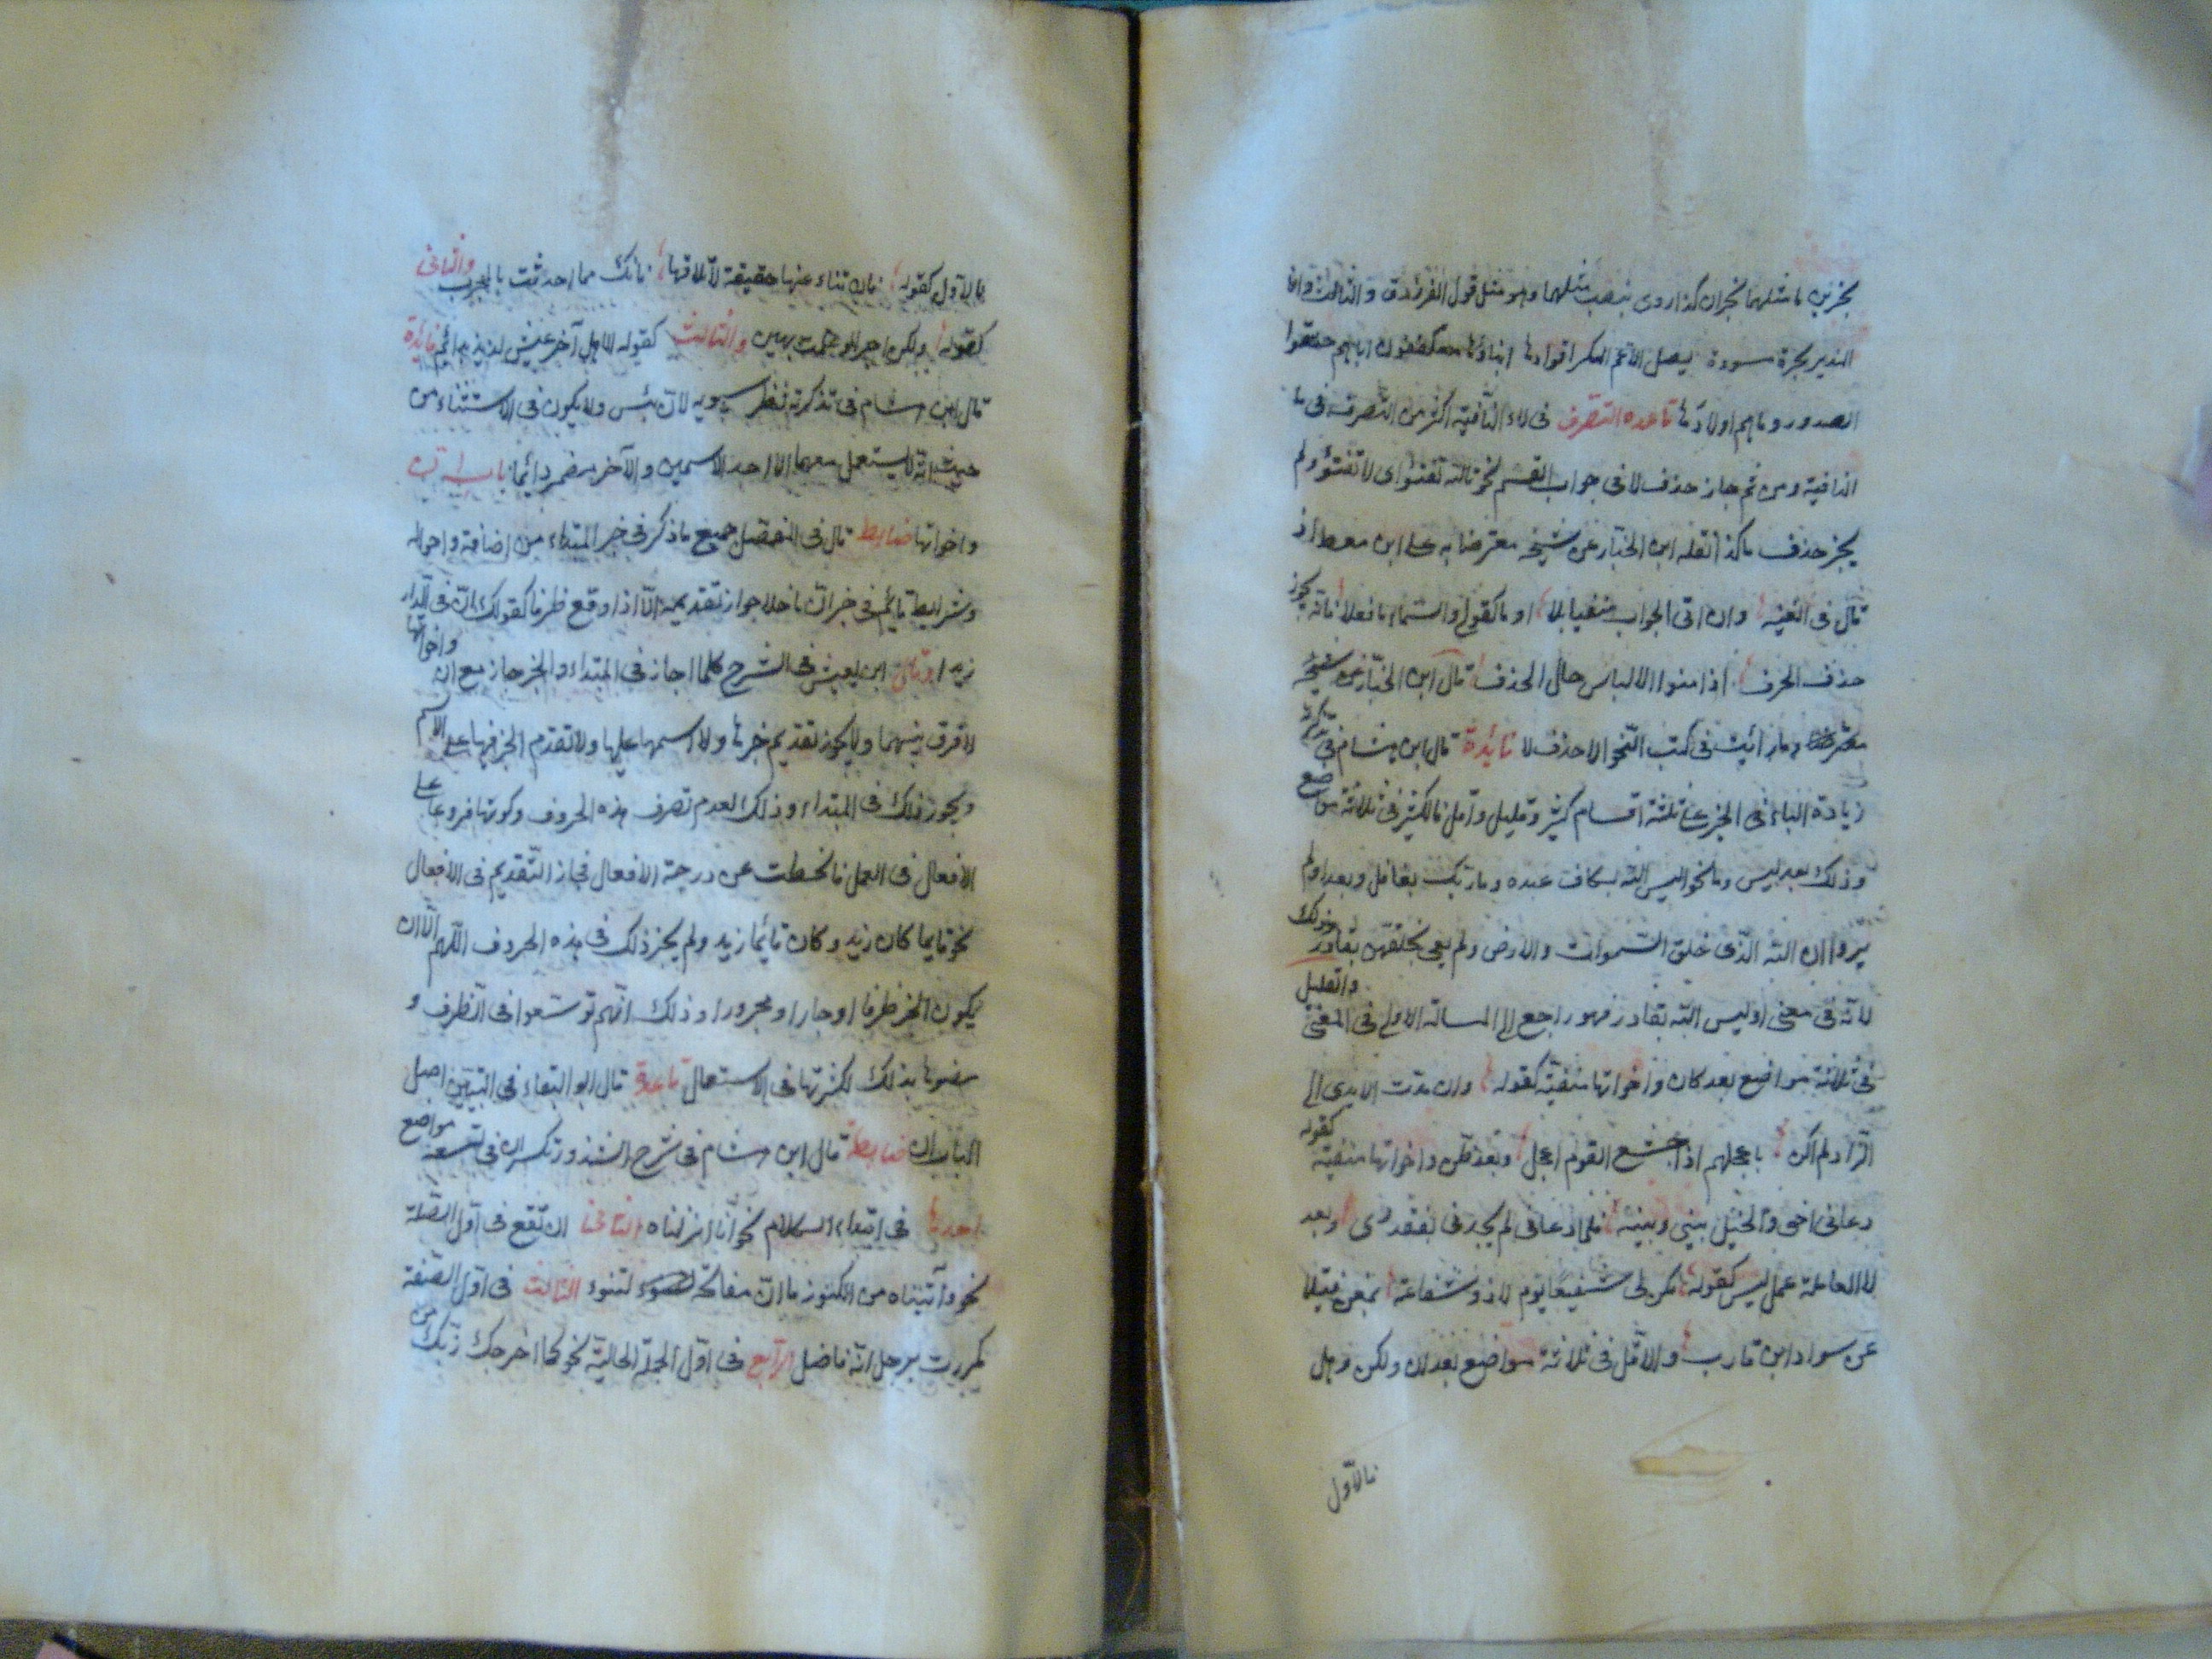 بخزين ما مثلهما بحران كذا روى بنصب مثلهما وهو مثل قول الفرزدق والثالث وانا
النذير بحرة مسودة يصل الاعم اليكم اقوادها ابناؤها متكنفون اباهم حنقوا
الصدور وما هم اولادها قاعدة التصرف فى لاء النافية اكثر من التصرف فى ما
النافية ومن ثم جاز حذف لا فى جواب القسم نحو تالله تفتؤ اى لا تفتؤ ولم
يجز حذف ما كذا نقله ابن الخباز عن شيخه معترضا به على ابن معط اذ
قال فى الفيه وان اتى الجواب منفيا بلا او ما كقولى والسماء ما فعلا فانه يجوز
حذف الحرف اذا امنوا الالباس حال الحذف قال ابن الخباز عن شيخه
معترضا وما رأيت فى كتب النحو الا حذف لا فائدة قال ابن هشام فى تذكرته
زيادة الباء فى الخبر على ثلثة اقسام كثير وقليل واقل فالكثير فى ثلاثة مواضع
وذلك بعد ليس وما نحو اليس الله بكاف عبده وما ربك بغافل وبعد اولم
يروا ان الله الذى خلق السموات والارض ولم يعى بخلقهن بقادر وذلك
لانه فى معنى اوليس الله بقادر فهو راجع الى المسألة الاولى فى المعنى والقليل
فى ثلاثة مواضع بعد كان واخواتها منفية كقوله وان مدت الايدى الى
الزاد لم اكن باعجلهم اذ اجشع القوم اعجل وبعد ظن واخواتها منفية كقوله
دعانى اخى والخيل بينى وبينه فلما دعانى لم يجدنى بقعدد وبعد
لا العاملة عمل ليس كقوله فكن لى شفيعا يوم لا ذو شفاعة بمغن فتيلا
عن سواد ابن قارب والاقل فى ثلاثة مواضع بعد ان ولكن وهل
فالاول
فالاول كقوله فان تنأ عنها حقبة لا تلاقها فانك مما احدثت بالمجرب والثانى
كقوله ولكن اجرا لو فعلت بهين والثالث كقوله الا هل اخو عيش لذيذ بدائم فائدة
قال ابن هشام فى تذكرته نظر سيبويه لات بليس ولا يكون فى الاستثناء من
حيث انه لا يستعمل معهما الا احد الاسمين والآخر مضمر دائما باب ان
واخواتها ضابط قال فى المفصل جميع ما ذكر فى خبر المبتداء من اصنافه واحواله
وشرايطه قائم فى خبر ان ما خلا جواز تقديمه الا اذا وقع ظرفا كقولك ان فى الدار
زيدا وقال ابن يعيش فى الشرح كلما جاز فى المبتداء والخبر جاز مع ان واخواتها
لا فرق بينهما ولا يجوز تقديم خبرها ولا اسمها عليها ولا تقدم الخبر فيها على الاسم
ويجوز ذلك فى المبتداء وذلك لعدم تصرف هذه الحروف وكونها فروعا على
الافعال فى العمل فانحطت عن درجة الافعال فجاز التقديم فى الافعال
نحو قائما كان زيد وكان قائما زيد ولم يجز ذلك فى هذه الحروف اللهم الا ان
يكون الخبر ظرفا او جارا ومجرورا وذلك انهم توسعوا فى الظرف و
خصوها بذلك لكثرتها فى الاستعمال قاعدة قال ابو البقاء فى التبيين اصل
الباب ان ضابط قال ابن هشام فى شرح الشذور تكسر ان فى تسعة مواضع
احدها فى ابتداء الكلام نحو انا انزلناه الثانى ان تقع فى اول الصلة
نحو وآتيناه من الكنوز ما ان مفاتحه لتنوء الثالث فى اول الصفة
كمررت برجل انه فاضل الرابع فى اول الجملة الحالية نحو كما اخرجك ربك من